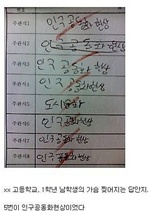 주관식1 인구공동화현상
주관식2 인구공동화현상
주관식3 인구공동화현상
주관식4 인구공동화현상
주관식5 도시공동화
주관식6 인구공동화현상
주관식7 인구공동화현상
주관식8 인구공동화현상
xx 고등학교, 1학년 남학생의 가슴 찢어지는 답안지.
5번이 인구공동화현상이였다